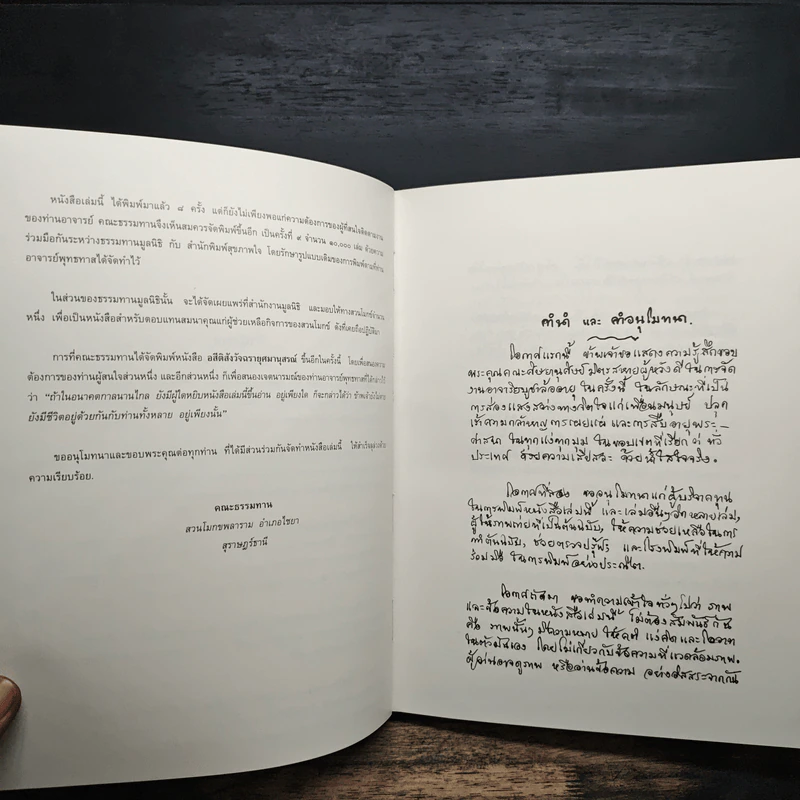 หนังสือเล่มนี้ ได้พิมพ์มาแล้ว ๘ ครั้ง แต่ก็ยังไม่เพียงพอแก่ความต้องการของผู้ที่สนใจติดตามงาน
ของท่านอาจารย์ คณะธรรมทานจึงเห็นสมควรจัดพิมพ์ขึ้นอีก เป็นครั้งที่ ๙ จำนวน ๑๐,๐๐๐ เล่ม ด้วยความ
ร่วมมือกันระหว่างธรรมทานมูลนิธิ กับ สำนักพิมพ์สุขภาพใจ โดยรักษารูปแบบเดิมของการพิมพ์ตามที่ท่าน
อาจารย์พุทธทาสได้จัดทำไว้
ในส่วนของธรรมทานมูลนิธินั้น จะได้จัดเผยแพร่ที่สำนักงานมูลนิธิ และมอบให้ทางสวนโมกข์จำนวน
หนึ่ง เพื่อเป็นหนังสือสำหรับตอบแทนสมนาคุณแก่ผู้ช่วยเหลือกิจการของสวนโมกข์ ดังที่เคยถือปฏิบัติมา
การที่คณะธรรมทานได้จัดพิมพ์หนังสือ อสีติสังวัจฉรายุศมานุสรณ์ ขึ้นอีกในครั้งนี้ โดยเพื่อสนองความ
ต้องการของท่านผู้สนใจส่วนหนึ่ง และอีกส่วนหนึ่ง ก็เพื่อสนองเจตนารมณ์ของท่านอาจารย์พุทธทาสที่ได้กล่าวไว้
ว่า "ถ้าในอนาคตกาลนานไกล ยังมีผู้ใดหยิบหนังสือเล่มนี้ขึ้นอ่าน อยู่เพียงใด ก็จะกล่าวได้ว่า ข้าพเจ้ายังไม่ตาย
ยังมีชีวิตอยู่ด้วยกันกับท่านทั้งหลาย อยู่เพียงนั้น"
ขออนุโมทนาและขอบพระคุณต่อทุกท่าน ที่ได้มีส่วนร่วมกันจัดทำหนังสือเล่มนี้ ให้สำเร็จลุล่วงด้วย
ความเรียบร้อย.
คณะธรรมทาน
สวนโมกขพลาราม อำเภอไชยา
สุราษฎร์ธานี
คำนำ และ คำอนุโมทนา.
โอกาสแรกนี้ ข้าพเจ้าขอแสดงความรู้สึกขอบ
พระคุณคณะศิษยานุศิษย์ มิตรสหายผู้หวังดี ในการจัด
งานอาจาริยบูชาล้ออายุ ในครั้งนี้ ในลักษณะที่เป็น
การส่องแสงสว่างทางจิตใจแก่เพื่อนมนุษย์ ปลุก
เร้าความกล้าหาญ การเผยแผ่ และการสืบอายุพระ-
ศาสนา ในทุกแง่ทุกมุม ในขอบเขตที่เรียกว่า ทั่ว
ประเทศ ด้วยความเสียสละ ด้วยน้ำใสใจจริง.
โอกาสที่สอง ขออนุโมทนาแก่ผู้บริจาคทุน
ในการพิมพ์หนังสือเล่มนี้ และเล่มอื่นๆ อีกหลายเล่ม,
ผู้ให้ภาพถ่ายที่เป็นต้นฉบับ, ให้ความช่วยเหลือในการ
ทำต้นฉบับ, ช่วยตรวจปรู๊ฟ, และโรงพิมพ์ที่ให้ความ
ร่วมมือ ในการพิมพ์อย่างประณีต.
โอกาสถัดมา ขอทำความเข้าใจทั่วๆ ไปว่า ภาพ
และข้อความในหนังสือเล่มนี้ ไม่ต้องสัมพันธ์กัน
คือ ภาพนั้นๆ มีความหมาย ให้คติ แง่คิดและโอวาท
ในตัวมันเอง โดยไม่เกี่ยวกับข้อความที่แวดล้อมภาพ.
ผู้อ่านอาจดูภาพ หรืออ่านข้อความ อย่างอิสระจากกัน